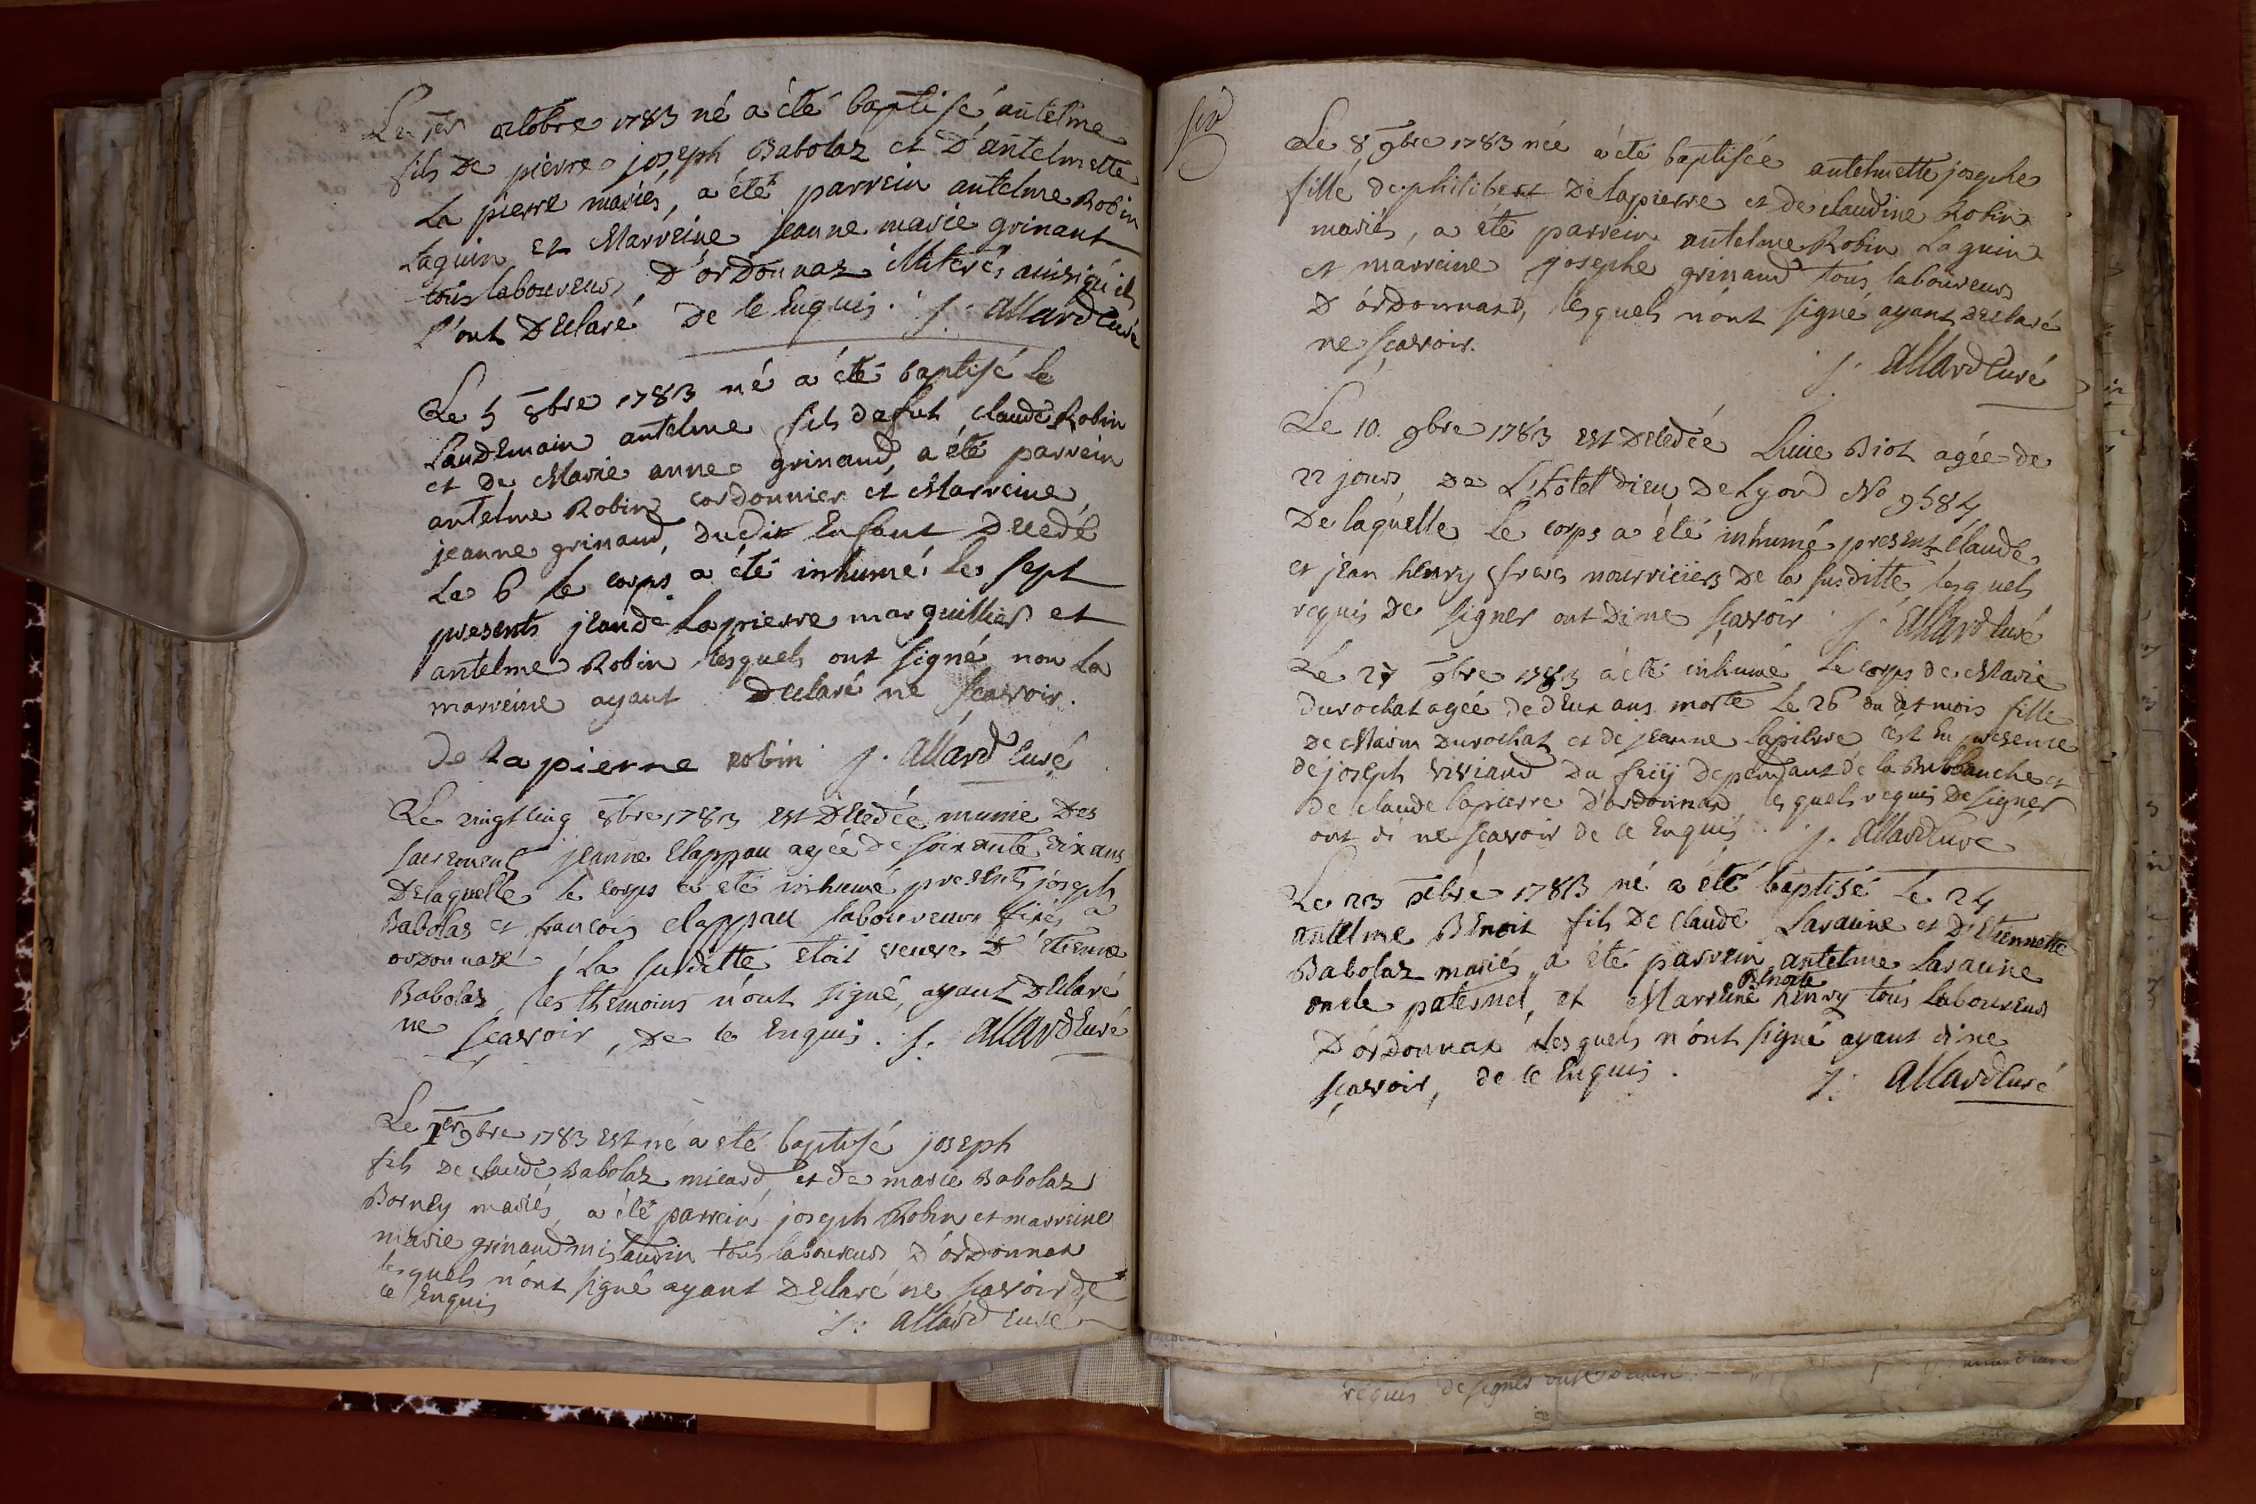 Le 1er octobre 1783 né a été baptisé antelme
fils De pierre joseph Babolaz et D'antelmette
La pierre mariés, a été parrein antelme Robin
Laguin et Marreine jeanne marie grinant
tous laboureurs D'ordonnaz illiterés ainsi qu'ils
l'ont Declaré De ce Enquis. j. allard Curé
Le 5 8bre 1783 né a été baptisé le
Landemain antelme fils de fut claude Robin
et de Marie anne grinand, a été parrein
antelme Robin cordonnier et Marreine
jeanne grinand, dudit Enfant Decedé
Le 6 le corps a été inhumé le sept
presents jean de Lapierre marguillier et
antelme Robin lesquels ont signé non La
marreine ayant Declaré ne sçavoir.
De Lapierre Robin j. allard Curé
Le vingt cinq 8bre 1783 est Decedée munie Des
sacrements jeanne Clappau agée de soixante dix ans
De laquelle le corps a été inhumé presents joseph
Babolas et françois clappau laboureurs fixés a
ordonnaz, La susditte etoit veuve D'etienne
Babolaz, les themoins n'ont signé, ayant Declaré
ne sçavoir, De ce Enquis. j. allard Curé
Le 1er 9bre 1783 est né a été baptisé joseph
fils De claude Babolaz micard et de marie Babolaz
Borney mariés, a été parrein joseph Robin et marreine
marie grinand tous laboureurs D'ordonnaz
lesquels n'ont signé ayant Declaré ne sçavoir de
ce Enquis j. allard Curé
Le 8 9bre 1783 née a été baptisée antelmette josephe
fille de philibert Delapierre et de claudine Robin
mariés, a été parrein antelme Robin Laguin
et marreine josephe grinand tous laboureurs
D'ordonnaz, lesquels n'ont signé ayant Declaré
ne sçavoir.
j. allard Curé
Le 10 9bre 1783 est Decedée Lucie Biot agée de
22 jours De L'hotel dieu De Lyon No 9584
De laquelle le corps a été inhumé presents Claude
et jean henry freres nourriciers De la susditte lesquels
requis De signer ont Di ne sçavoir j. allard Curé
Le 27 9bre 1783 a été inhumé le corps de Marie
Durochat agée de deux ans morte le 26 du dt mois fille
De Marin Durochat et de jeanne lapierre c'est En presence
de joseph viviand Du dependant de la Burbanche et
de claude lapierre D'ordonnaz lesquels requis De signer
ont di ne sçavoir de ce Enquis. j. allard Curé
Le 23 Xbre 1783 né a été baptisé le 24
antelme Benoit fils De claude Laraune et D'Etiennette
Babolaz mariés a été parrein antelme Laraune
oncle paternel, et Marreine Benoite henry tous laboureurs
D'ordonnaz lesquels n'ont signé ayant di ne
sçavoir, de ce Enquis. j. allard Curé
requis de signer